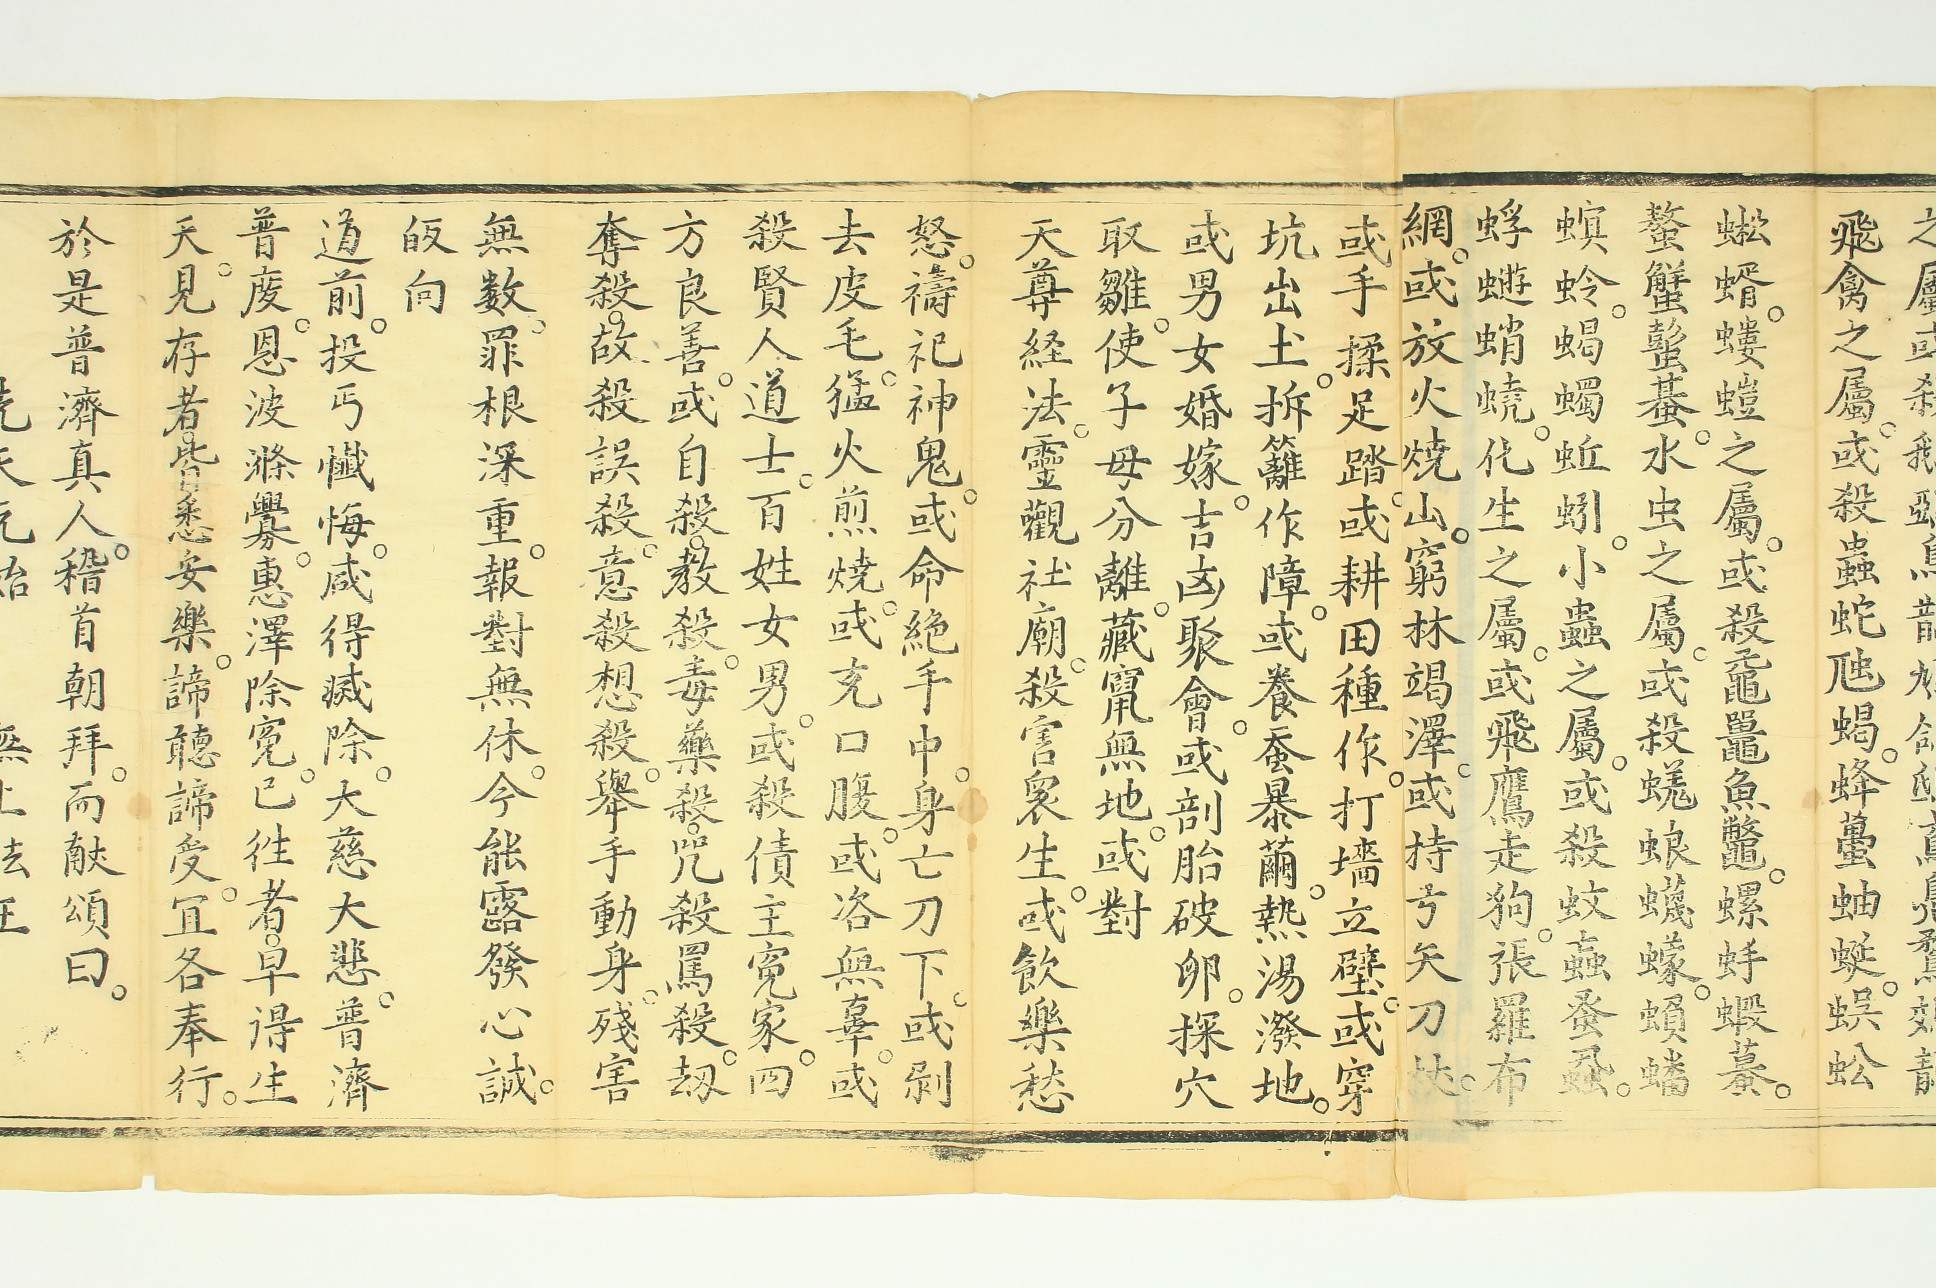 飛禽之屬。或殺蟲蛇虺蝎。蜂蠆蚰蜒。蜈蚣
蜥蝑。螻螘之屬。或殺黿鼉魚鼈。螺蚌蝦蟇。
螯蟹蟚蜞。水虫之屬。或殺蜣蜋蠛蠓。蠙蟠
螟蛉。蝎蠋蚯蚓。小蟲之屬。或殺蚊蝱蚤虱。
蜉蝣蛸蟯。化生之屬。或飛鷹走狗。張羅布
網。或放火燒山。窮林竭澤。或持弓矢刀杖。
或手揉足踏。或耕田種作。打墻立壁。或穿
坑出土。拆籬作障。或養蚕暴繭。熱湯潑地。
或男女婚嫁。吉凶聚會。或剖胎破卵。探穴
取雛。使子母分離。藏竄無地。或對
天尊経法。靈觀社廟。殺害衆生。或飲樂愁
怒。禱祀神鬼。或命絶手中。身亡刀下。或剥
去皮毛。猛火煎燒。或充口腹。或咨無辜。或
殺賢人道士。百姓女男。或殺債主寃家。四
方良善。或自殺。教殺。毒藥殺。咒殺罵殺。刼
奪殺。故殺誤殺。意殺想殺。舉手動身。殘害
無數。罪根深重。報對無休。今能露發心誠。
皈向
道前。投丐懺悔。咸得滅除。大慈大悲。普濟
普度。恩波滌釁。惠澤除寃。已徃者。早得生
天。見存者。皆悉安樂。諦聽諦受。宜各奉行。
於是普濟真人。稽首朝拜。而献頌曰。